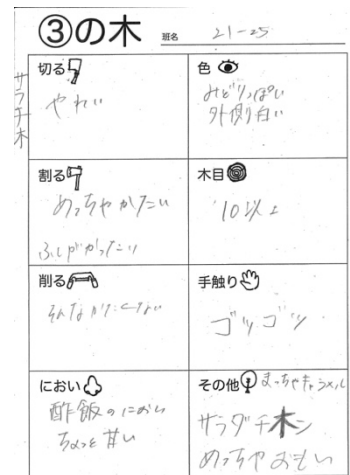 ③の木
班名 21-25
サラチ木
切る
やれい
色
みどりっぽい
外側白い
割る
めっちゃかたい
ふしがかったい
木目
10以上
削る
そんなかたくない
手触り
ゴツゴツ
におい
酢飯のにおい
ちょっと甘い
その他
まっちゃキャラメル
サラダチ木ン
めっちゃおもい